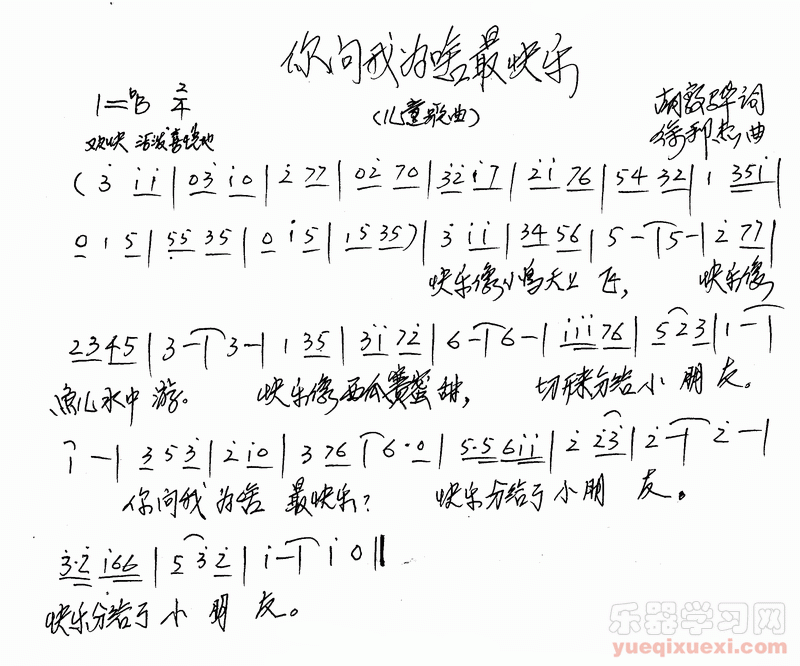 你问我为啥最快乐
1=♭B 2/4
(儿童歌曲)
词
曲
欢快 活泼喜悦地
( 3̇ i i | 0 3̇ i 0 | 2̇ 7 7 | 0 2̇ 7 0 | 3̇ 2̇ i 7 | 2̇ i 7 6 | 5 4 3 2 | 1 3 5 i |
0 1 5 | 5 5 3 5 | 0 i 5 | 1 5 3 5 ) | 3̇ i i | 3 4 5 6 | 5 - | 5 - | 2̇ 7 7 |
快乐像小鸟天上飞, 快乐像
2 3 4 5 | 3 - | 3 - | 1 3 5 | 3 i 7 2̇ | 6 - | 6 - | i i i 7 6 | 5 2̇ 3̇ | 1 - |
鱼儿水中游。 快乐像西瓜赛蜜甜, 切开来分给小朋友。
1 - | 3 5 3̇ | 2̇ i 0 | 3 7 6 | 6 · 0 | 5 · 5 6 i i | 2̇ 2̇ 3̇ | 2̇ - | 2̇ - |
你问我为啥最快乐? 快乐分给了小朋友。
3̇ · 2̇ i 6 6 | 5 3̇ 2̇ | i - | i 0 ‖
快乐分给了小朋友。
乐器学习网
yueqixuexi.com